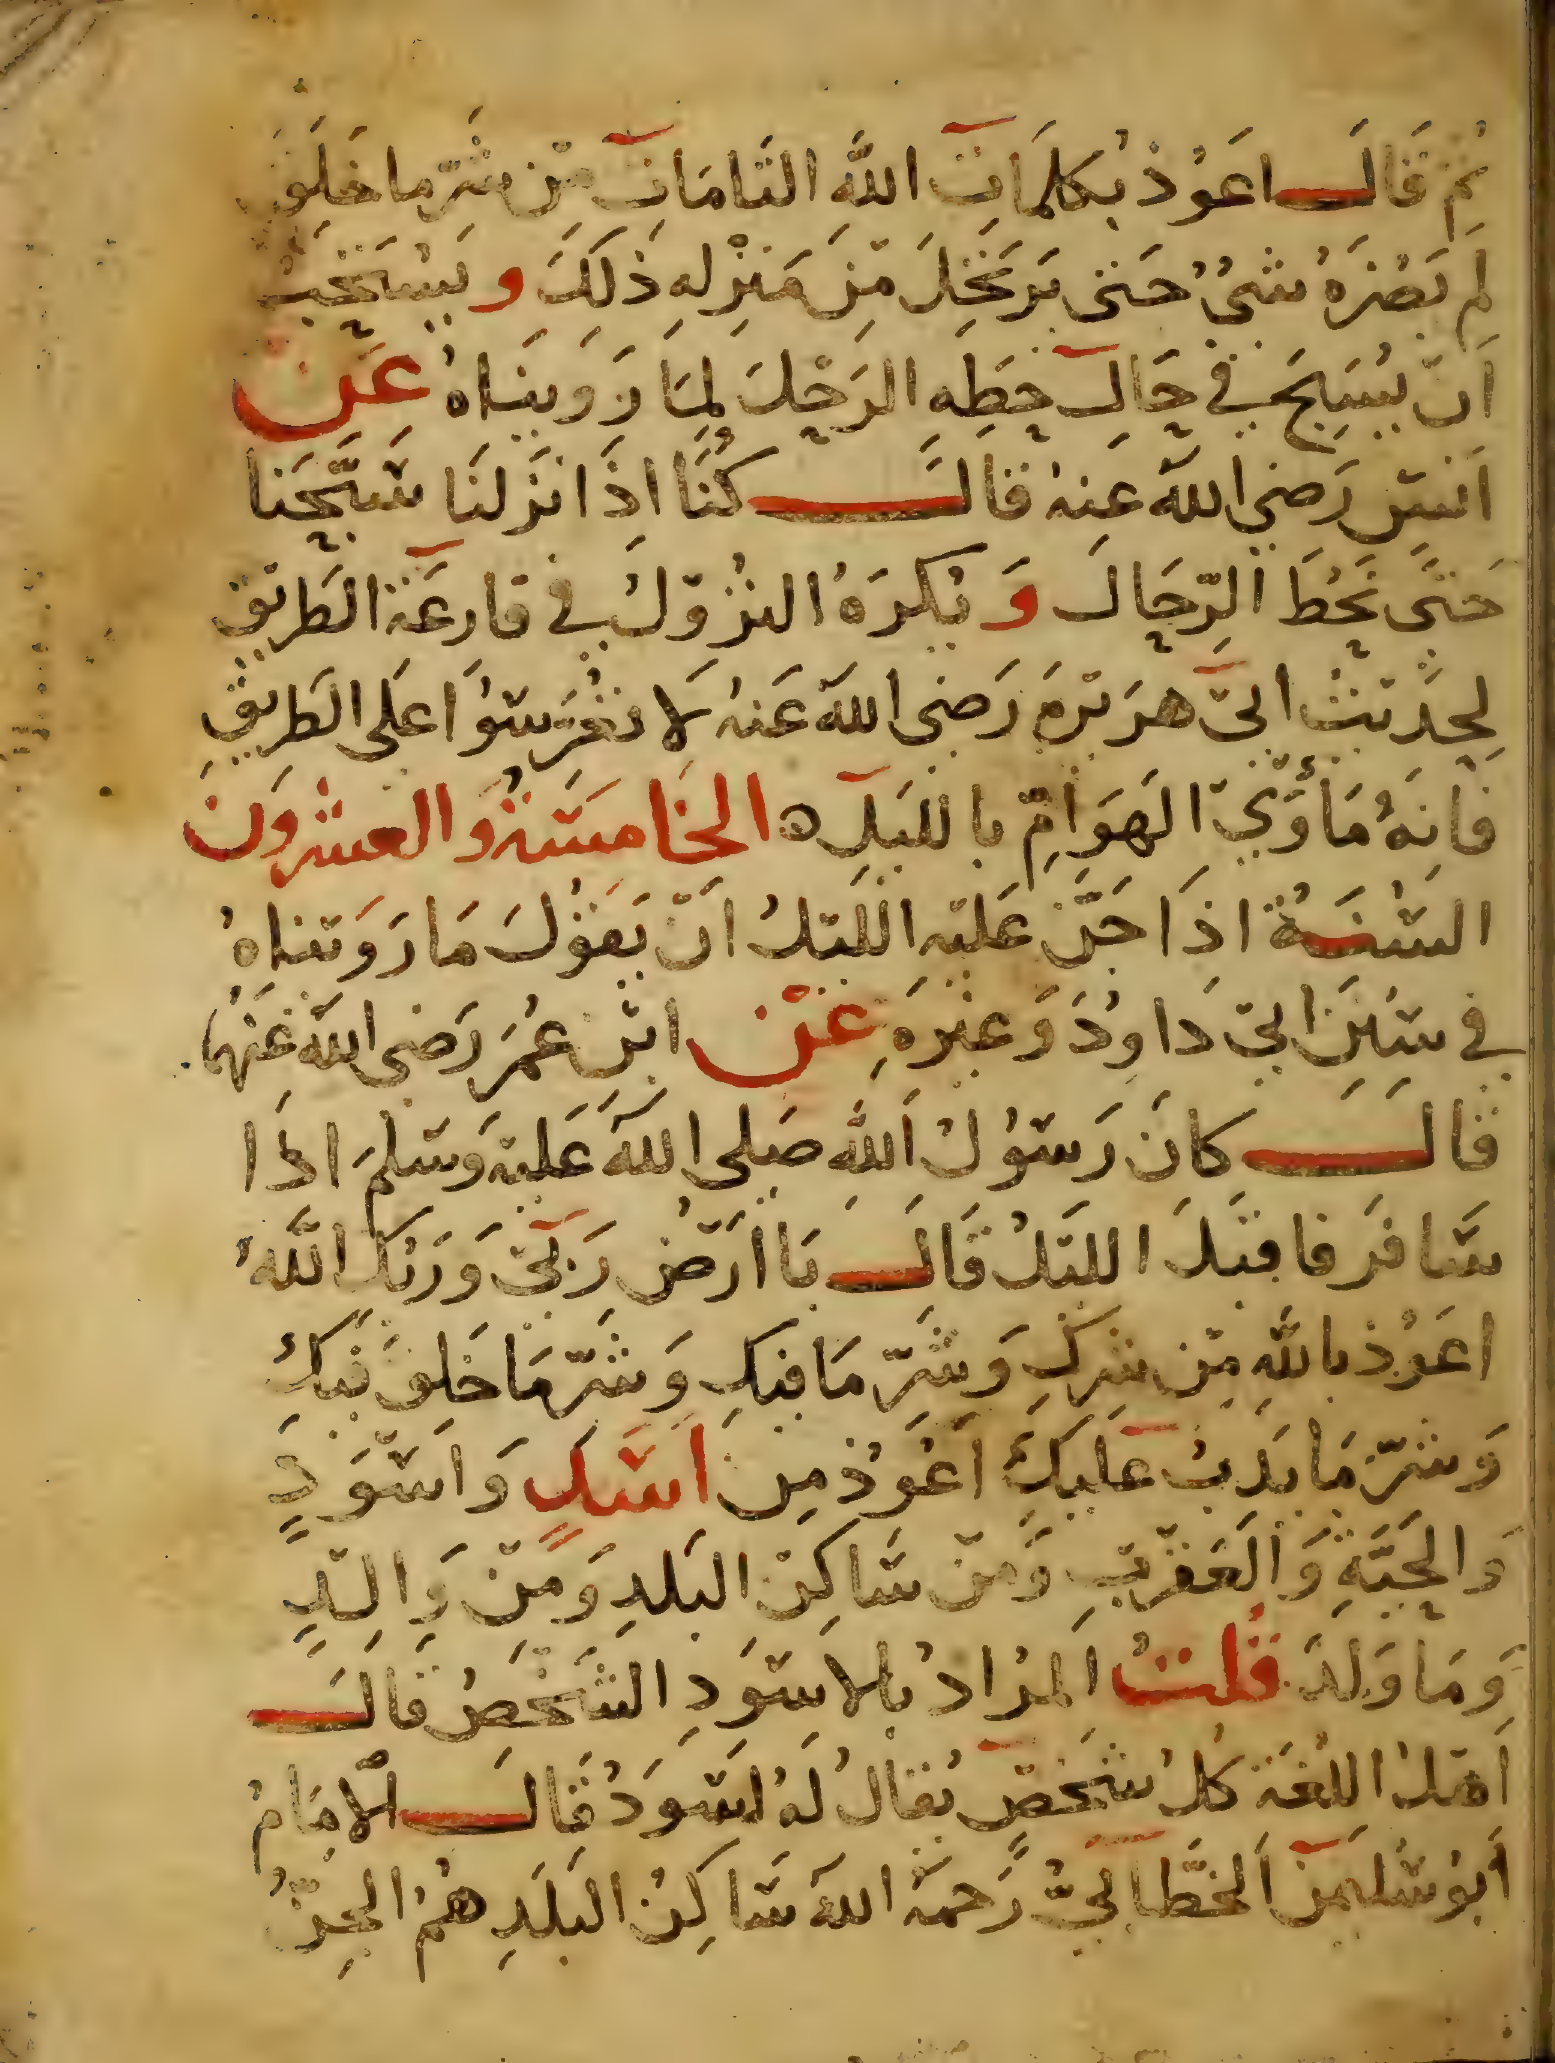 ثم قال اعوذ بكلمات الله التامات من شر ما خلق
لم يضره شئ حتى يرتحل من منزله ذلك ويستحب
ان يسبح في حال حطه الرحل لما رويناه عن
انس رضي الله عنه قال كنا اذا نزلنا سبحنا
حتى نحط الرحال ويكره النزول في قارعة الطريق
لحديث ابي هريرة رضي الله عنه لا تعرسوا على الطريق
فانه مأوي الهوام بالليل ه الخامسة والعشرون
السنة اذا جن عليه الليل ان يقول ما رويناه
في سنن ابي داود وغيره عن ابن عمر رضي الله عنهما
قال كان رسول الله صلى الله عليه وسلم اذا
سافر فاقبل الليل قال يا ارض ربي وربك الله
اعوذ بالله من شرك وشر ما فيك وشر ما خلق فيك
وشر ما يدب عليك اعوذ من اسد واسود
والحية والعقرب ومن ساكن البلد ومن والد
وما ولد قلت المراد بالاسود الشخص قال
اهل اللغة كل شخص يقال له اسود قال الامام
ابو سليمن الخطابي رحمه الله ساكن البلد هم الجن